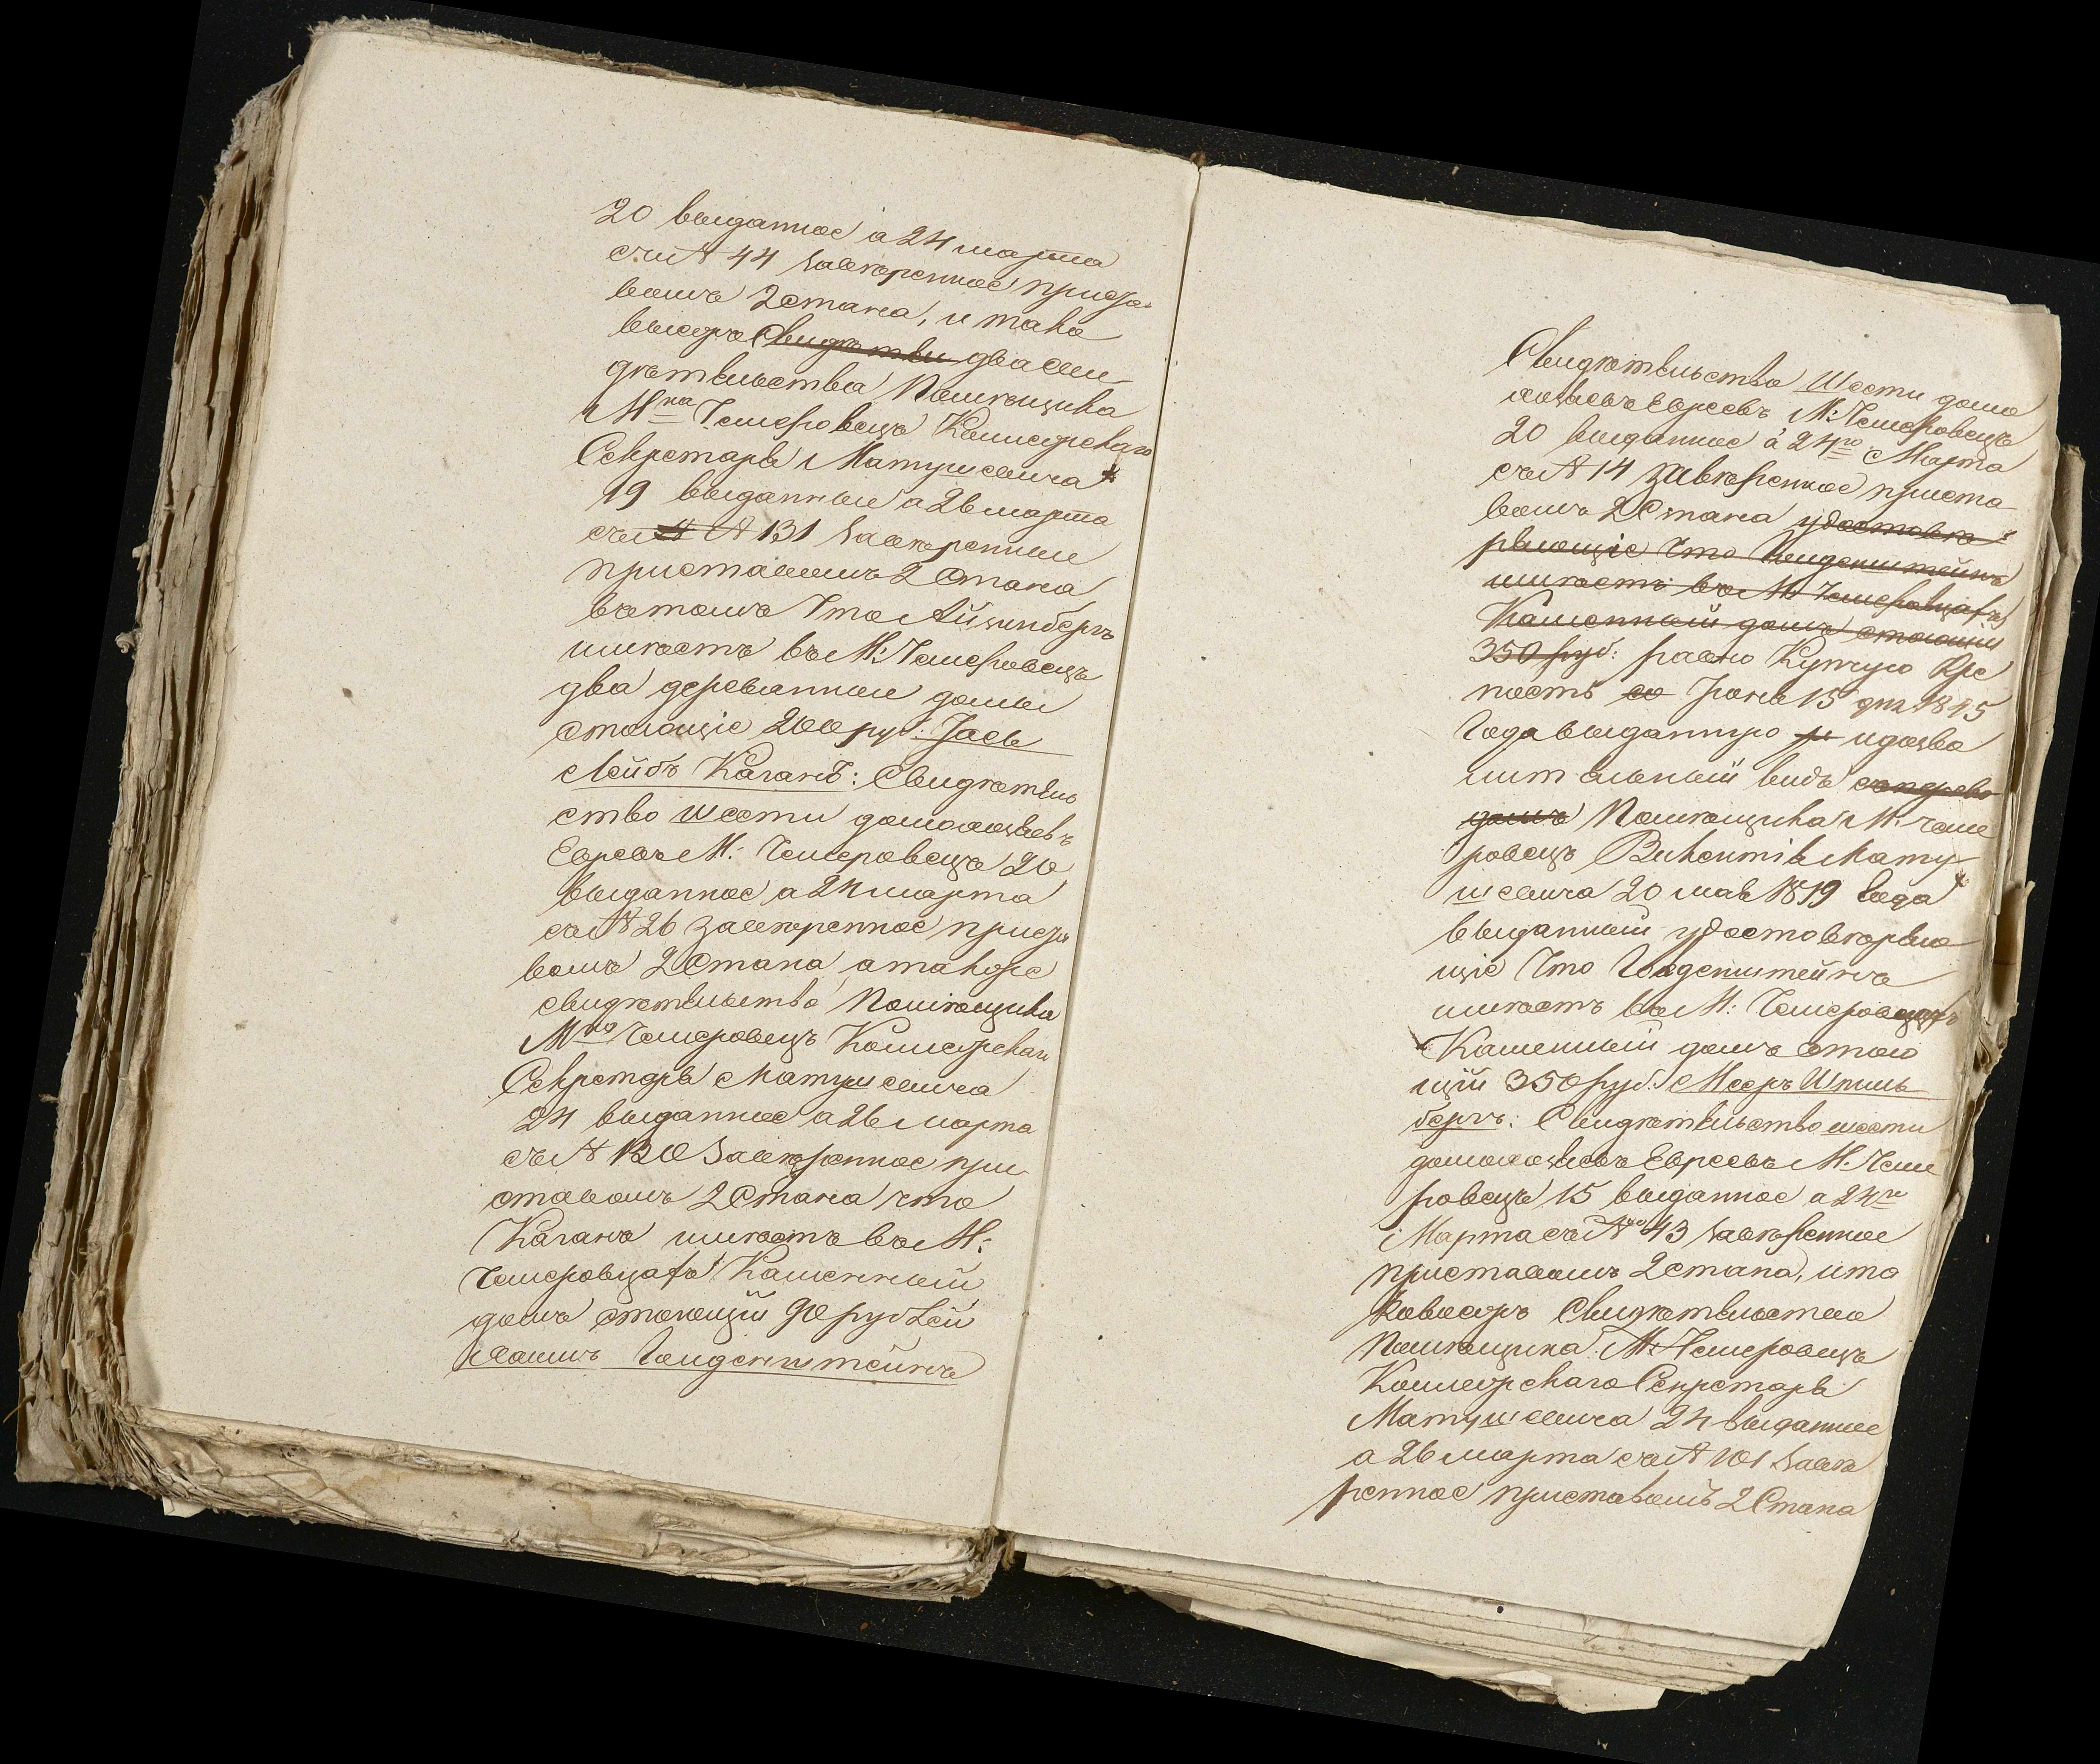 20 выданное а 24 марта
съ № 44 завѣренное приста
вомъ 2 стана, и тако
выхъ же Свидѣтели два сви
дѣтельства Помѣщика
М<sup>ка</sup> Чемеровецъ Коллежскаго
Секретаря Матушевича
19 выданные а 26 марта
съ № 131 завѣренные
приставомъ 2 Стана
въ томъ что Айзинбергъ
имѣетъ въ М: Чемеровецъ
два деревянные домы
стоющіе 200 руб: Іось
Лейбъ Каганъ: Свидѣтель
ство шести домохозяевъ
Евреевъ М: Чемеровецъ 20
выданное а 24 марта
съ № 26 завѣренное приста
вомъ 2 Стана, а такоже
свидѣтельство Помѣщика
М<sup>ка</sup> Чемеровецъ Коллежскаго
Секретаря Матушевича
24 выданное а 26 марта
съ № 130 завѣренное при
ставомъ 2 Стана что
Каганъ имѣетъ въ М:
Чемеровцахъ Каменный
домъ стоющій 90 рублей
Хаимъ Гольденштейнъ
Свидѣтельство Шести домо
хозяевъ Евреевъ М: Чемеровецъ
20 выданное а 24<sup>го</sup> Марта
съ № 14 завѣренное приста
вомъ 2 Стана удостовѣ
ряющіе что Гольденштейнъ
имѣетъ въ М: Чемеровцахъ
Каменный домъ стоющій
350 руб: равно Купчую Крѣ
пость 15 дня 1845
Года выданную и дозво
лительный видъ
домъ Помѣщика М: Чеме
ровецъ Викентія Мату
шевича 20 мая 1819 года
выданный удостовѣряю
щіе что Гольденштейнъ
имѣетъ въ М: Чемеровцахъ
Каменный домъ стою
щій 350 руб: Мееръ Шпиль
бергъ: Свидѣтельство шести
домохозяевъ Евреевъ М: Чеме
ровецъ 15 выданное а 24<sup>го</sup>
Марта съ № 43 завѣренное
приставомъ 2 стана, и та
ковое жъ Свидѣтельство
Помѣщика М: Чемеровецъ
Коллежскаго Секретаря
Матушевича 24 выданное
а 26 марта съ № 101 завѣ
ренное приставомъ 2 Стана